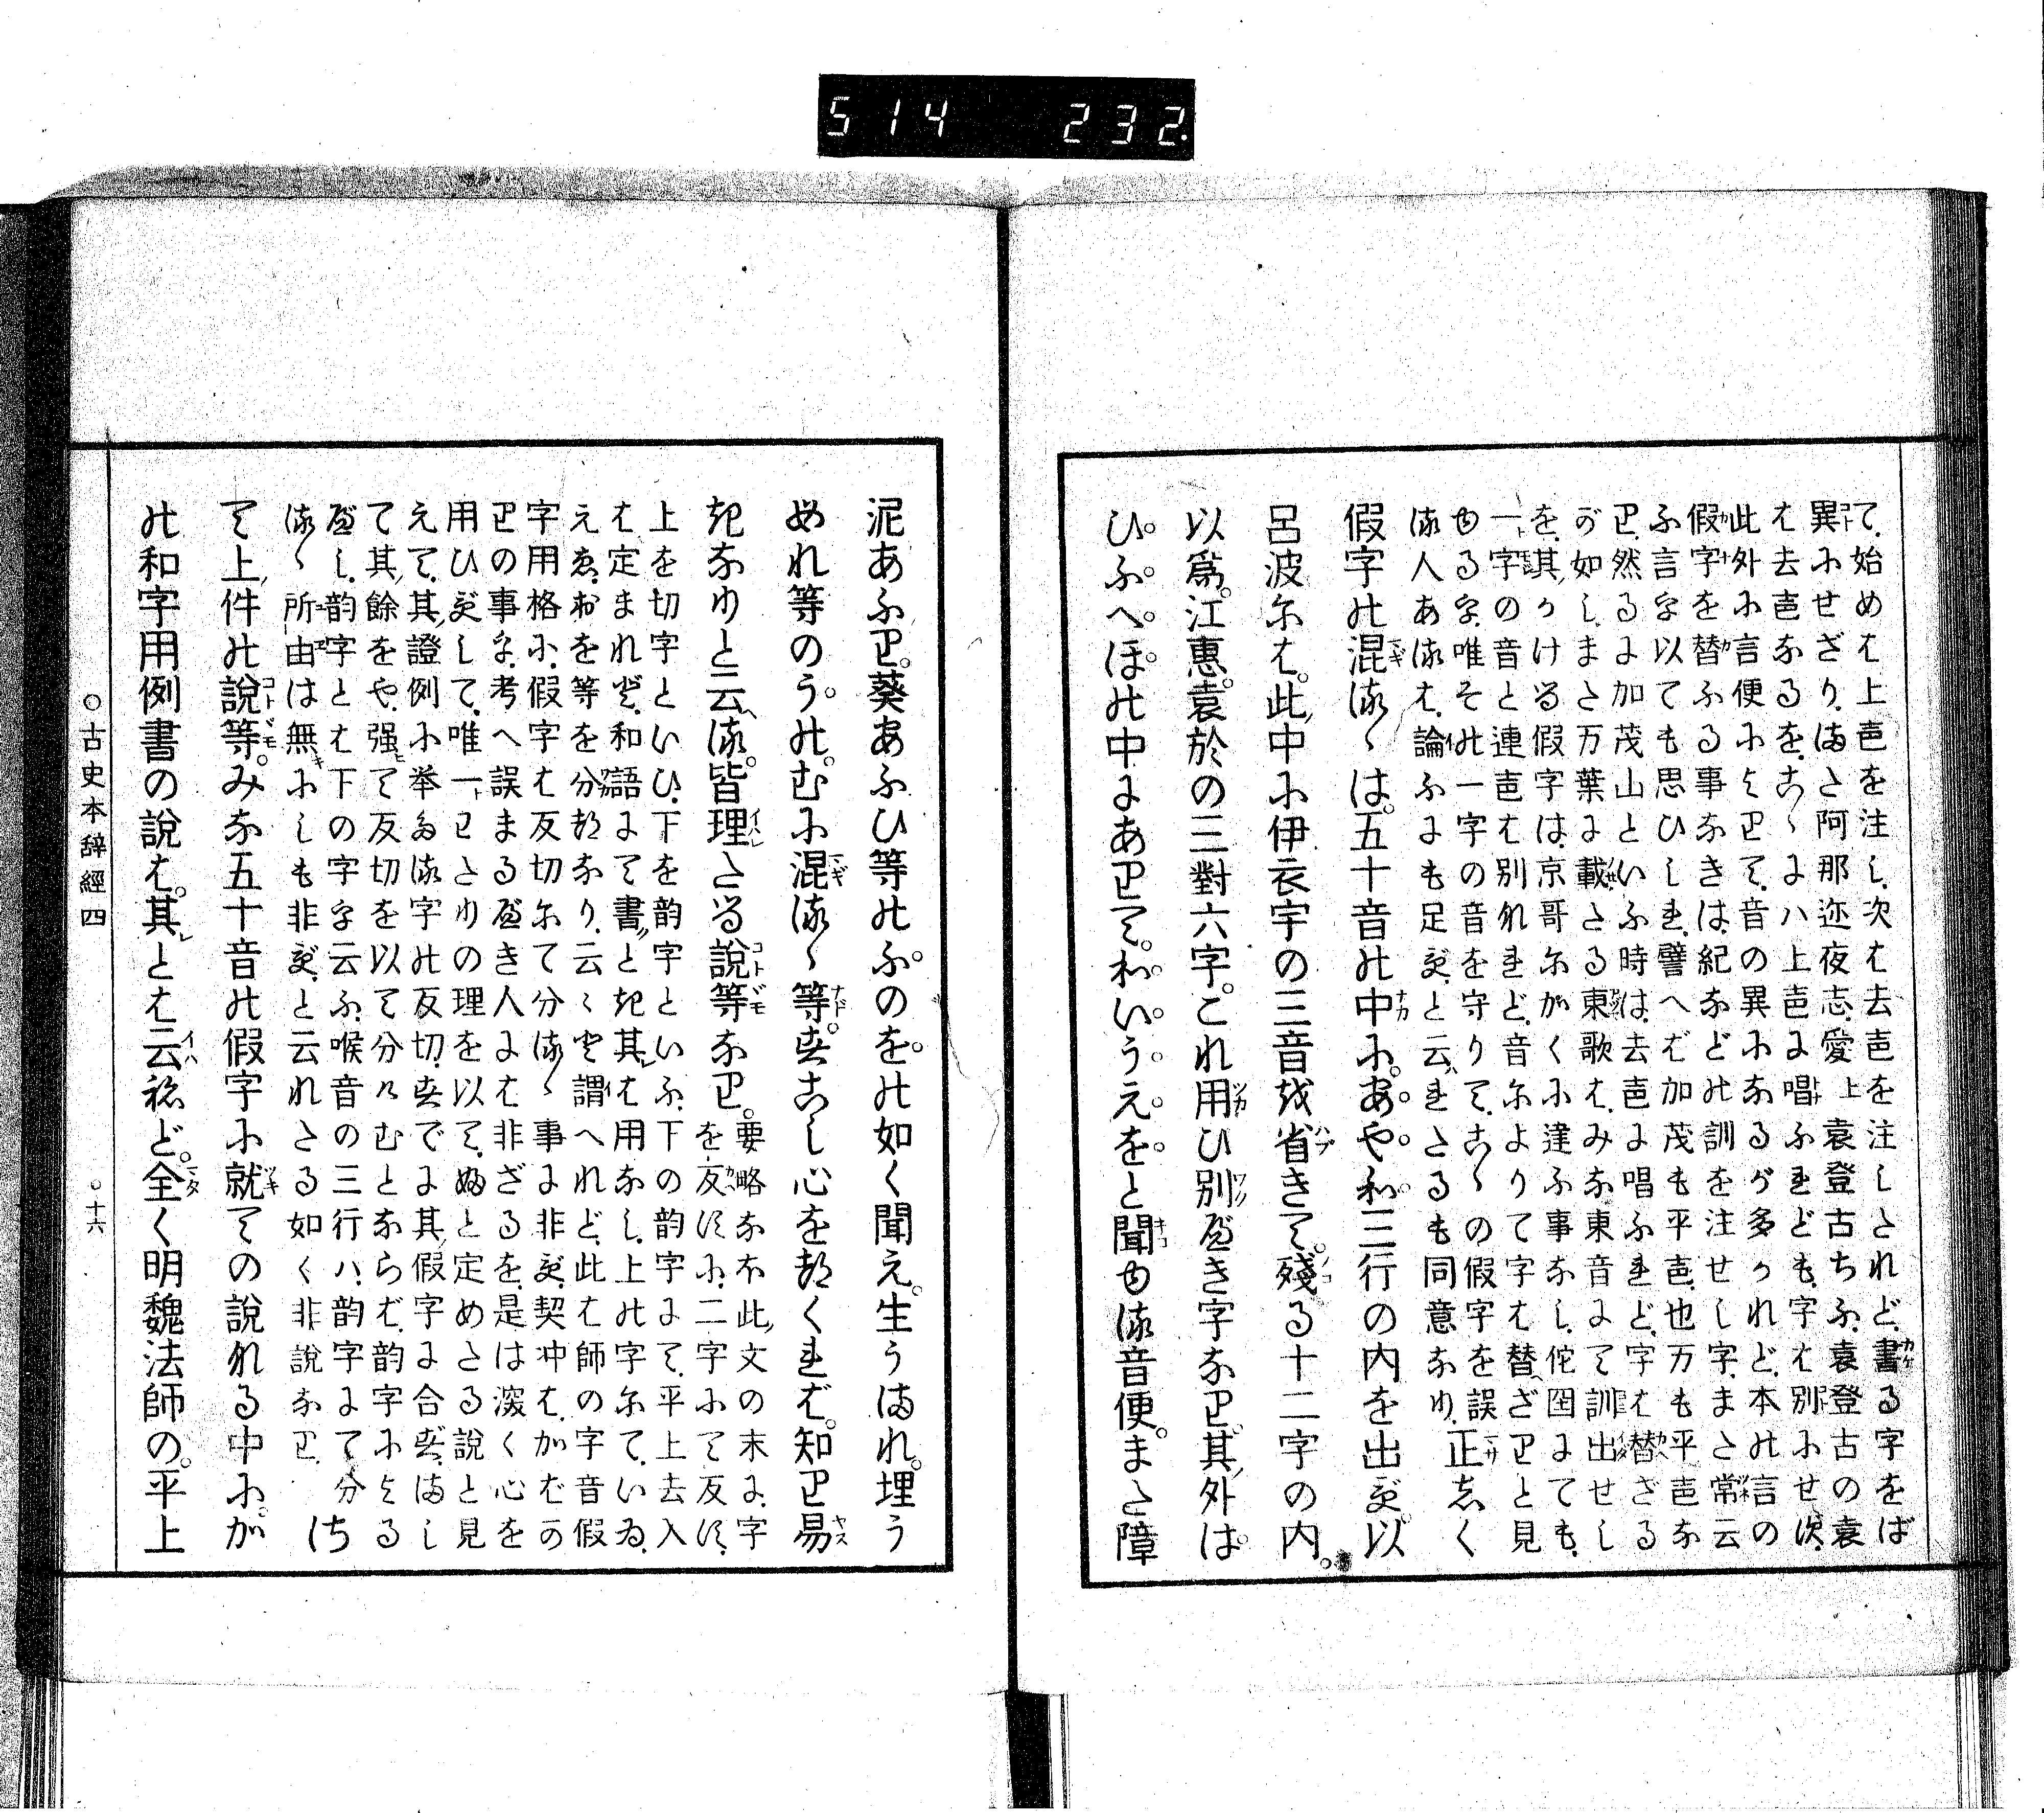 514 232.
て、始めは上声を注し、次は去声を注しされど、書る字をば
異にせざり、また阿那迩夜志愛上袁登古ちふ、袁登古の袁
は去声なるを、こゝにハ上声に唱ふれども、字は別にせず、
此外に言便によりて、音の異になるが多かれど、本の言の
假字を替ふる事なきは、紀などの訓を注せし字、また常云
ふ言を以ても思ひしれ、譬へば加茂も平声、也万も平声な
り、然るに加茂山といふ時は、去声に唱ふれど、字は替ざる
が如し、また万葉に載たる東歌は、みな東音にて訓出せし
を、其かける假字は、京哥にがくに違ふ事なし、佗国にても、
一字の音と連声は別れど、音によりて字は替ざりと見
ゆるを、唯その一字の音を守りて、こゝの假字を誤
る人あるは、論ふにも足ず、と云れたるも同意なり、正しく
假字の混るゝは。五十音の中に。あやわ三行の内を出ず。以
呂波には。此中に伊衣宇の三音を省きて。殘る十二字の内。
以爲。江惠。袁於の三對六字。これ用ひ別べき字なり。其外は
ひふへほの中にありて。わいうえをと聞ゆる音便。また障
泥あふり。葵あふひ等のふのを。の如く聞え。生うまれ。埋う
めれ等のう。の。むに混るゝ等。まこし心をおくれば。知り易
きなりと云る。皆理たる説等なり。要略なほ此文の末に、字を反すに、二字にて反す、
上を切字といひ、下を韵字といふ、下の韵字にて、平上去入
は定まれど、和語にて書とき其は用なし、上の字にて、いゐ、
えゑ、おを等を分おなり、云々と謂へれど、此は師の字音假
字用格に、假字は反切にて分るゝ事に非ず、契冲は、かばの
りの事を、考へ誤まるべき人には非ざるを、是は深く心を
用ひずして、唯一わたりの理を以て、ふと定めたる説と見
えて、其證例に挙たる字の反切、までに其假字に合ず、まし
て其餘をや、强て反切を以て分たむとならば、韵字による
べし、韵字とは下の字を云ふ、喉音の三行ハ、韵字にて分
るゝ所由は無にしも非ず、と云れたる如く非説なり、
さて上件の説等。みな五十音の假字に就ての説れる中に。が
の和字用例書の説は。其とは云ねど。全く明魏法師の。平上
○古史本辞經四
○十六